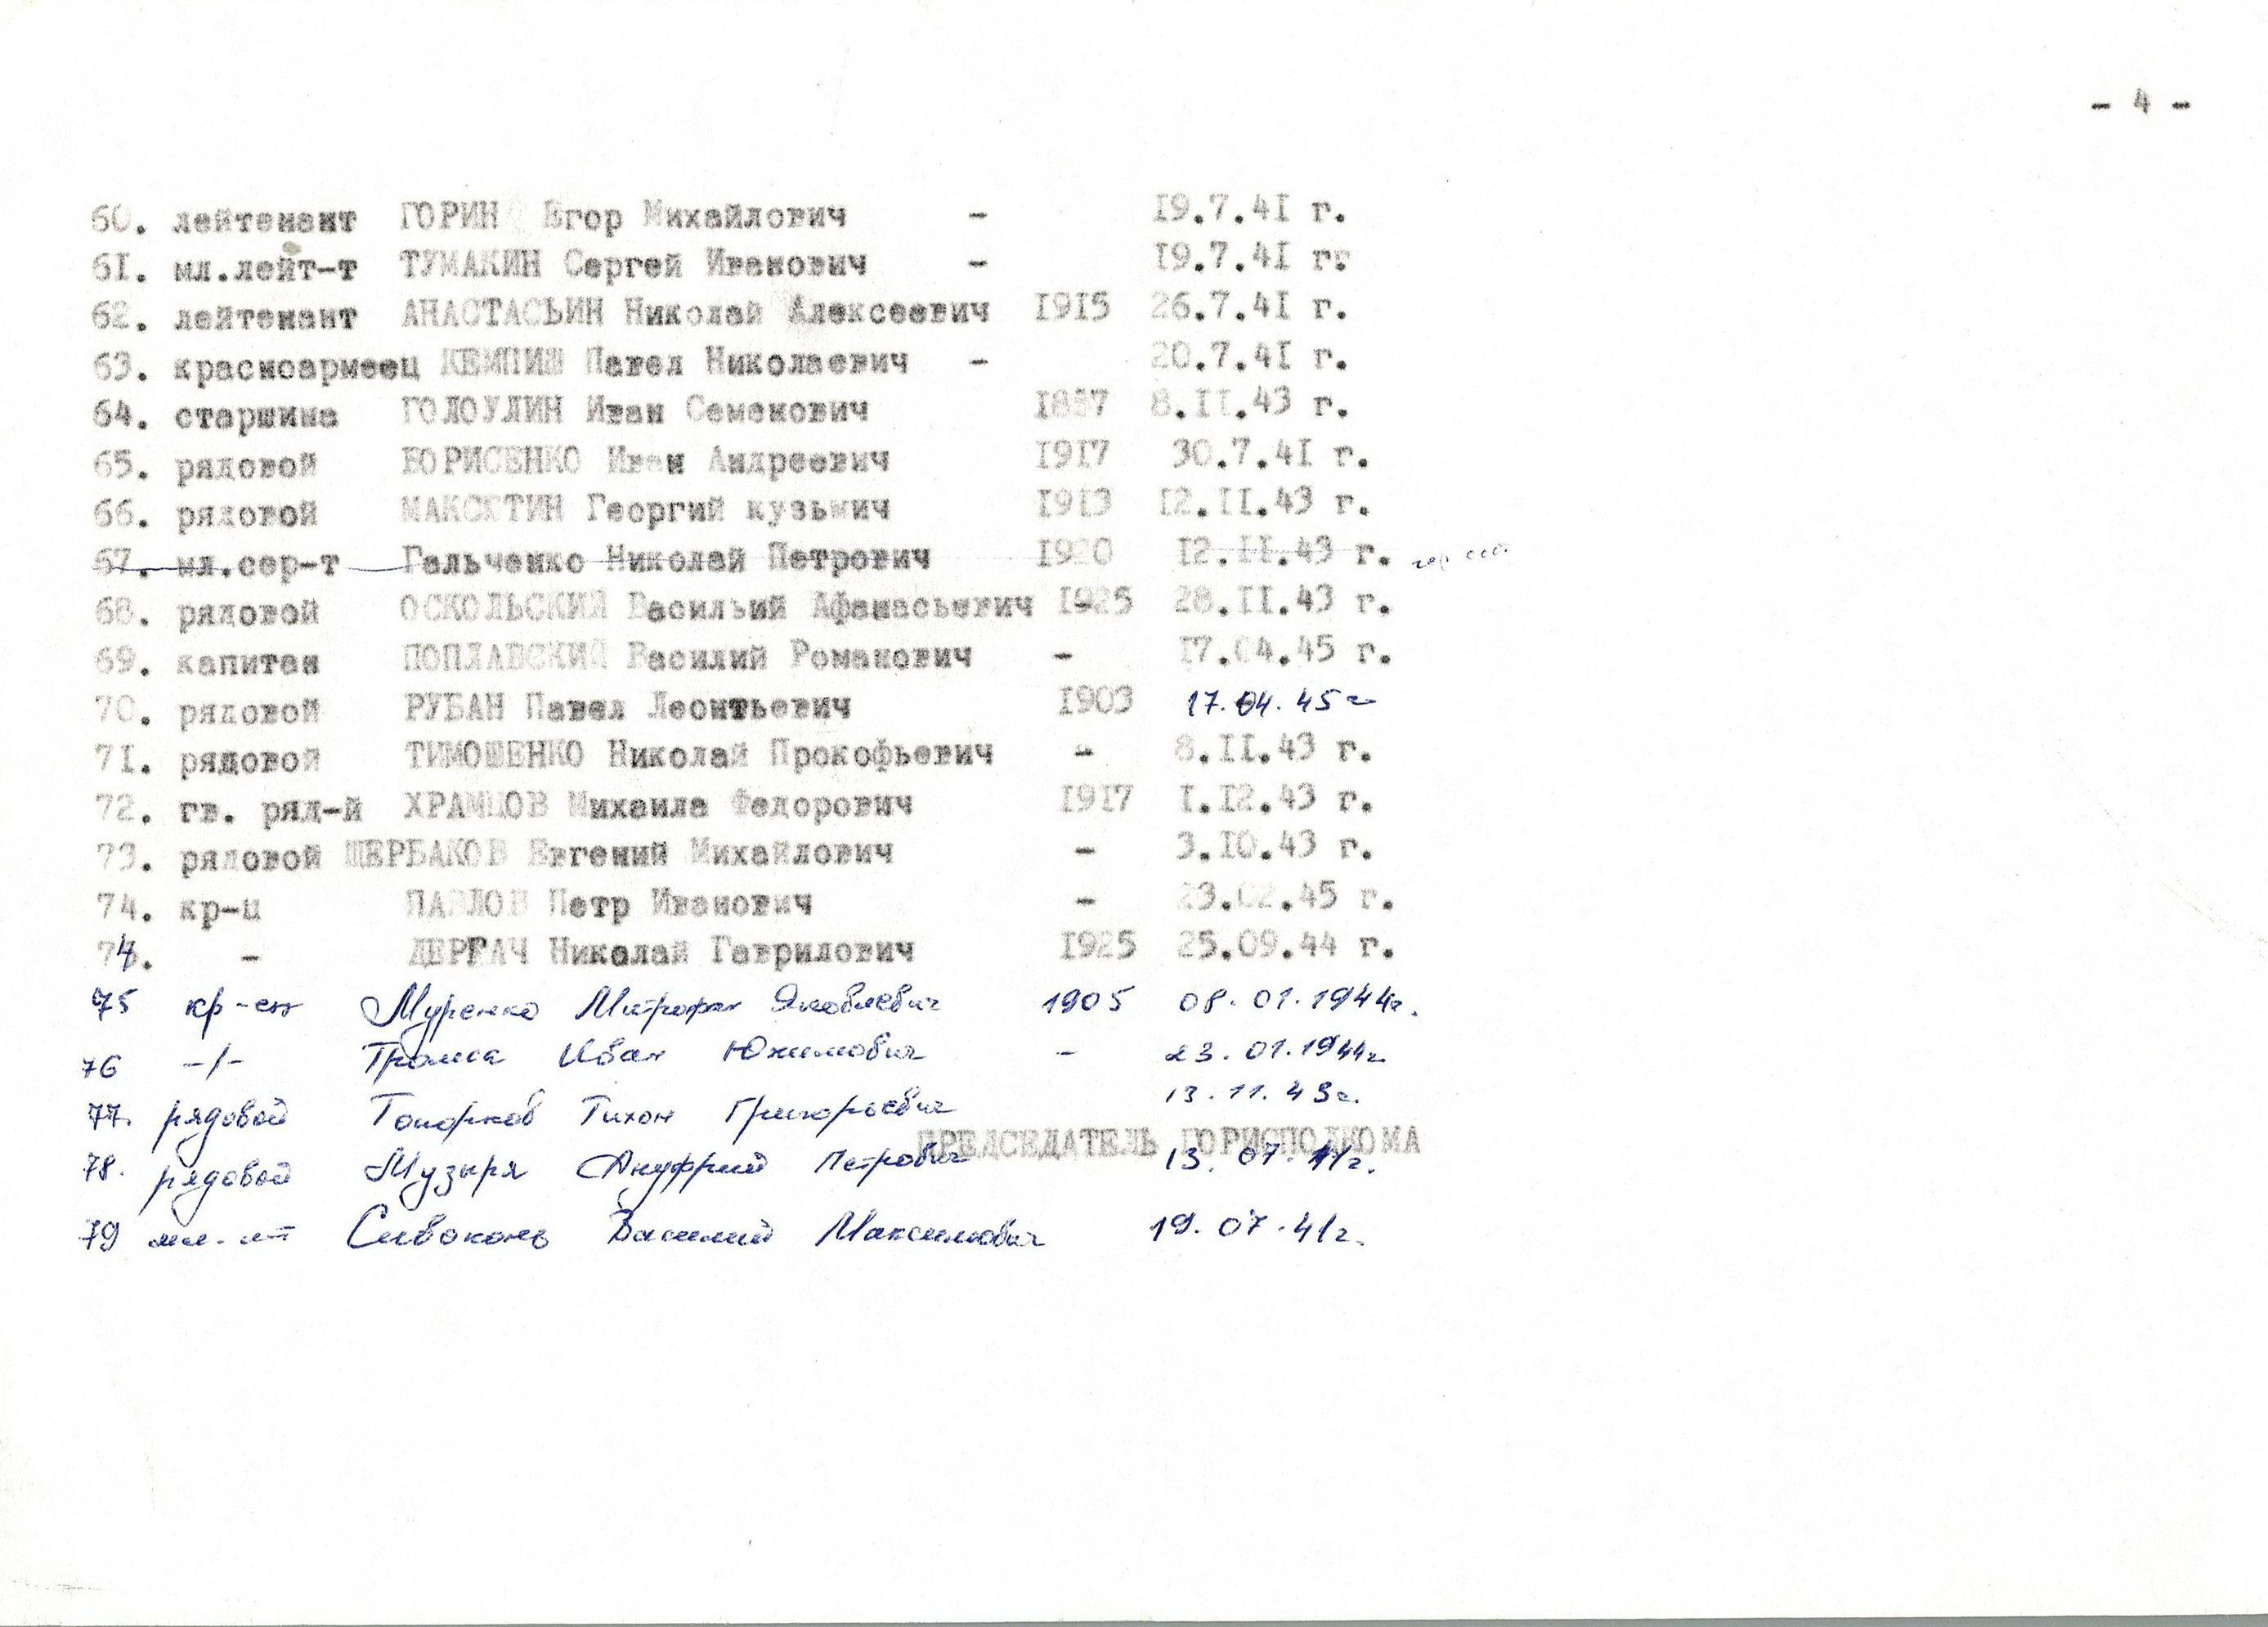 - 4 -
60. лейтенант ГОРИН Егор Михайлович - 19.7.41 г.
61. мл.лейт-т ТУМАКИН Сергей Иванович - 19.7.41 г.
62. лейтенант АНАСТАСЬИН Николай Алексеевич 1915 26.7.41 г.
63. красноармеец Павел Николаевич - 20.7.41 г.
64. старшина ГОЛОУЛИН Иван Семенович 8.11.43 г.
65. рядовой БОРИСЕНКО Иван Андреевич 1917 30.7.41 г.
66. рядовой Георгий кузьмич 1913 12.11.43 г.
67. мл.сер-т Гальченко Николай Петрович 1920 12.11.43 г.
68. рядовой ОСКОЛЬСКИЙ Васильий Афанасьевич 1925 28.11.43 г.
69. капитан ПОПЛАВСКИЙ Василий Романович - 17.04.45 г.
70. рядовой РУБАН Павел Леонтьевич 1903 17.04.45 г
71. рядовой ТИМОШЕНКО Николай Прокофьевич - 8.11.43 г.
72. гв. ряд-й ХРАМЦОВ Михаила Федорович 1917 1.12.43 г.
73. рядовой ЩЕРБАКОВ Евгений Михайлович - 3.10.43 г.
74. кр-ц ПАВЛОВ Петр Иванович - 23.02.45 г.
74. - ДЕРГАЧ Николай Гаврилович 1925 25.09.44 г.
75 Муренко Митрофан Яковлевич 1905 08.01.1944г.
76 -/- Иван Юхимович - 23.01.1944г
77. рядовой Топорков Тихон Григорьевич 13.11.43г.
ПРЕДСЕДАТЕЛЬ ГОРИСПОЛКОМА
78. рядовой Музыря Ануфрий Петрович 13.07.41г.
79 мл. л-т Сивоконь Василий Максимович 19.07.41г.